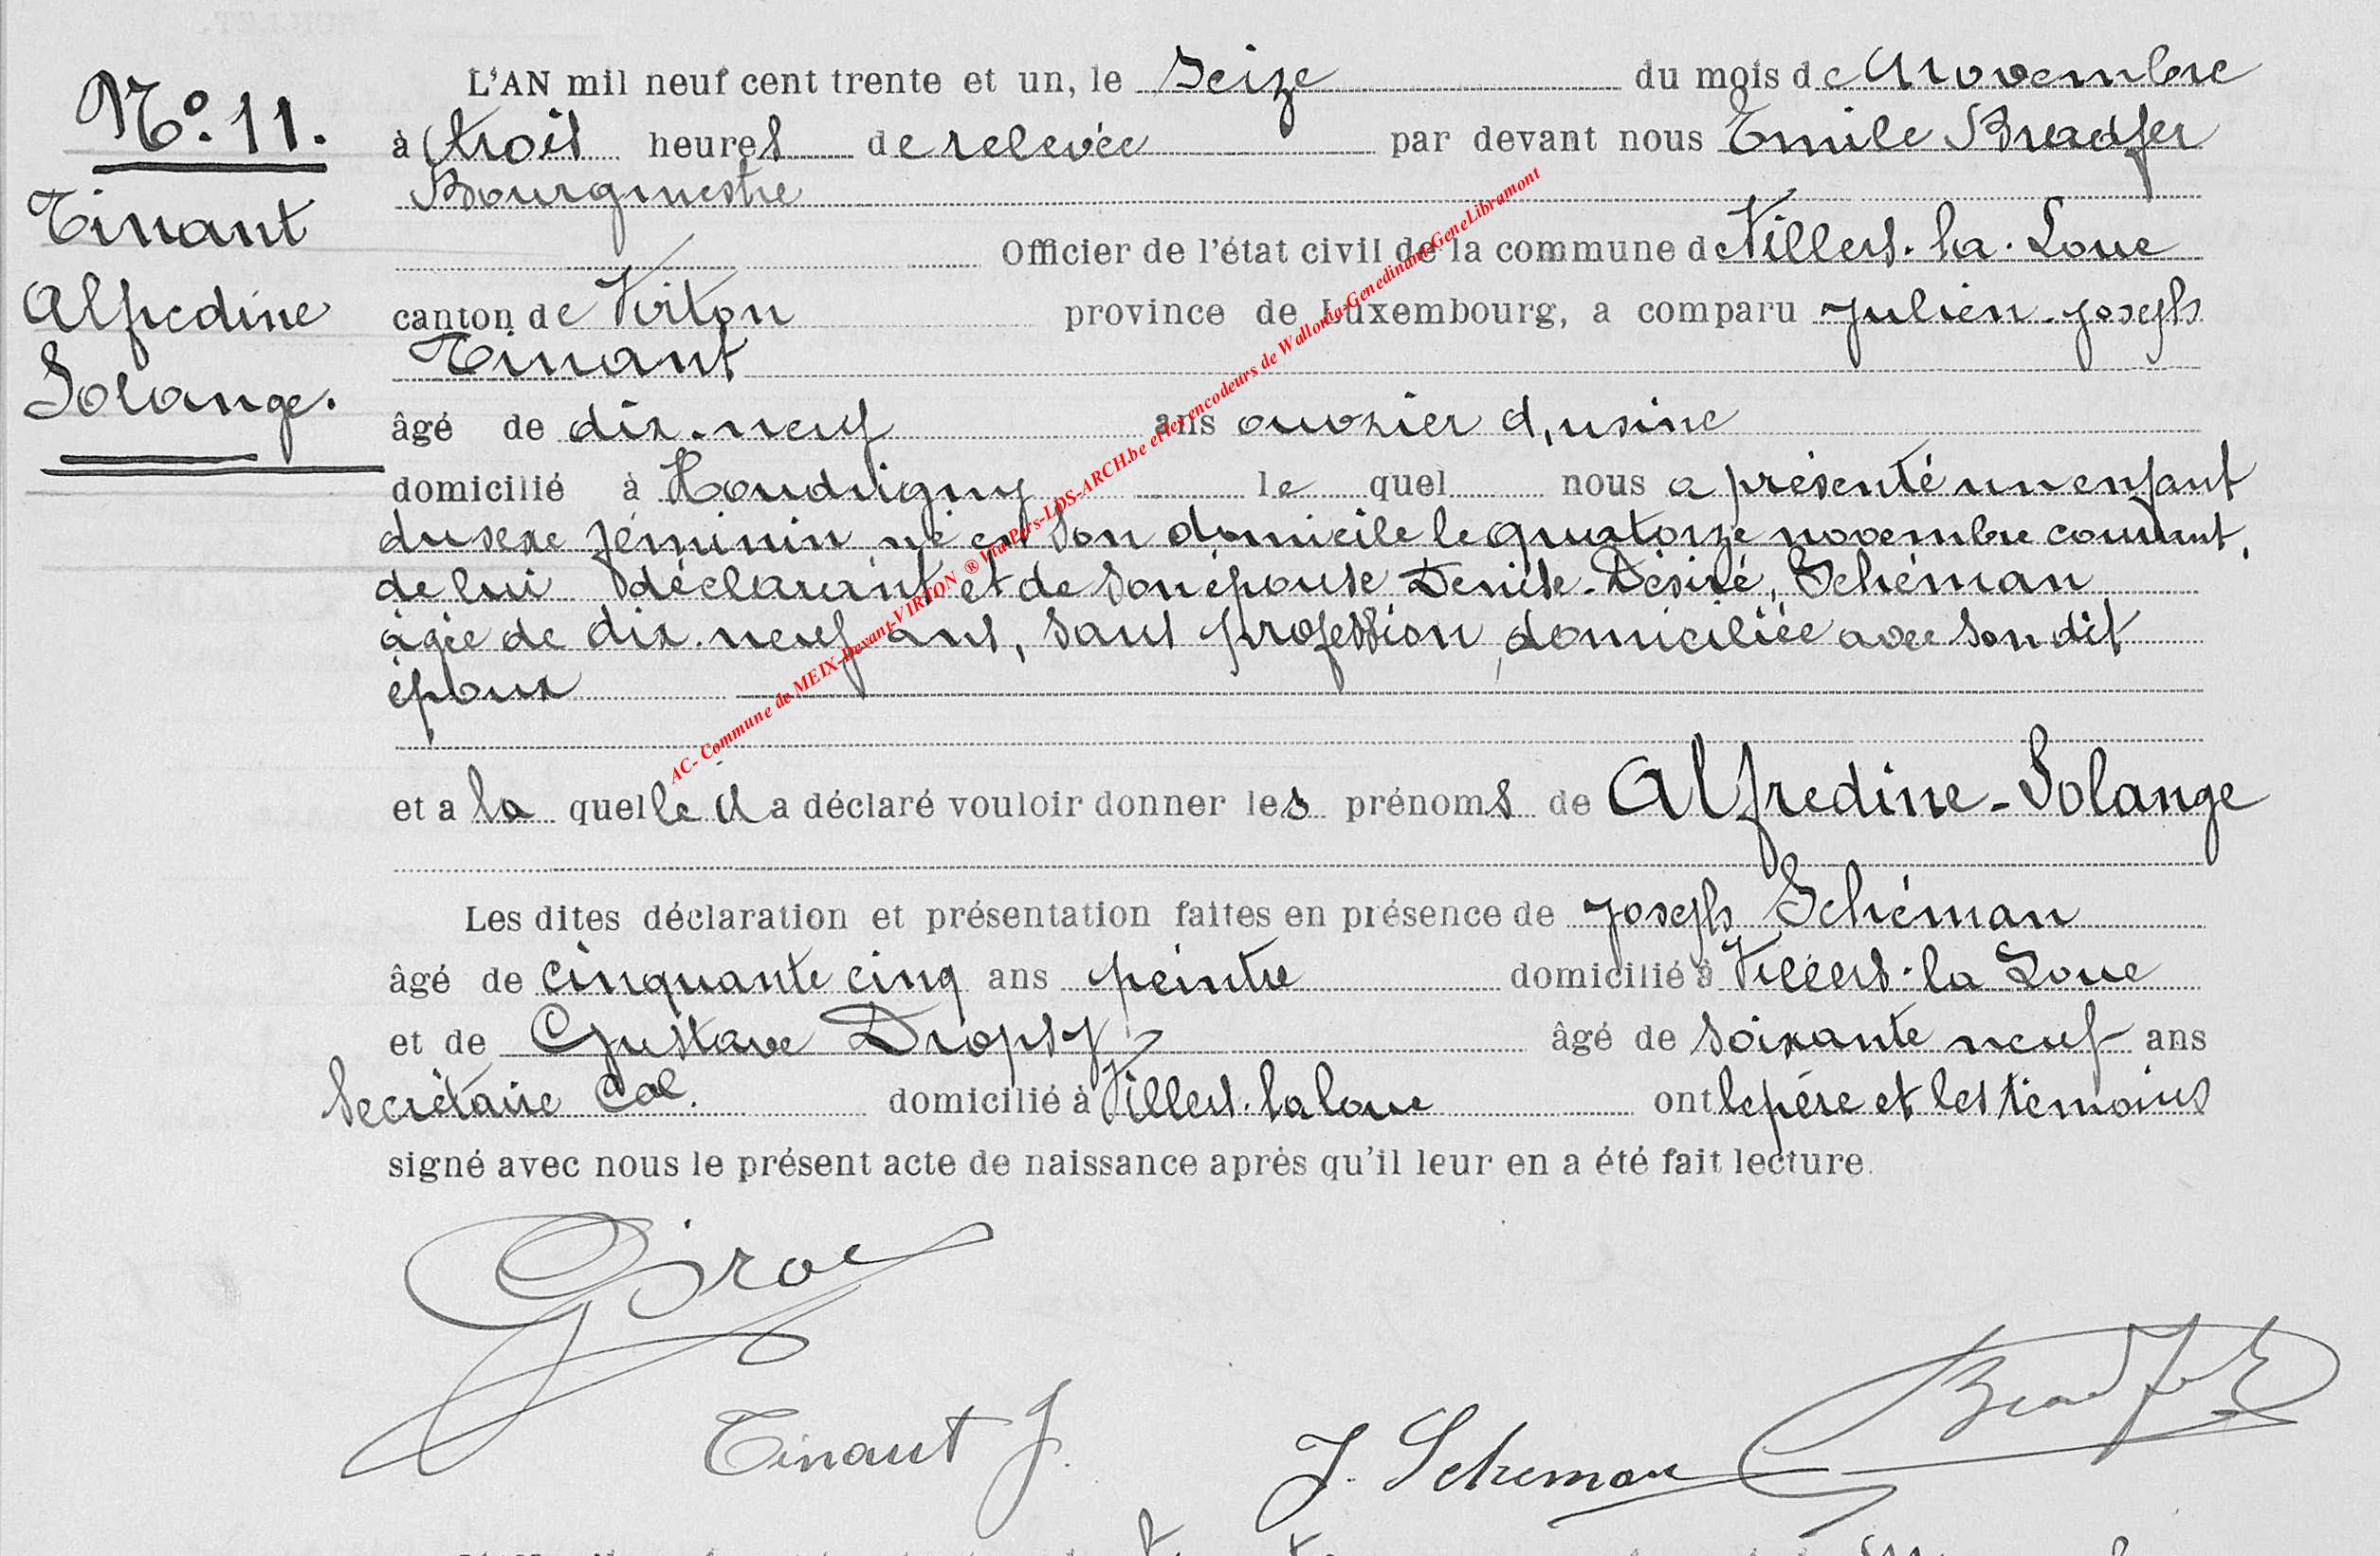 N° 11.
Tinant
Alfredine
Solange.
L'AN mil neuf cent trente et un, le Seize du mois de Novembre
à trois heures de relevée par devant nous Emile Bradfer
Bourgmestre
Officier de l'état civil de la commune de Villers-la-Loue
canton de Virton province de Luxembourg, a comparu Julien-Joseph
Tinant
âgé de dix-neuf ans ouvrier d'usine
domicilié à Houdrigny le quel nous a présenté un enfant
du sexe féminin né en son domicile le quatorze novembre courant,
de lui déclarant et de son épouse Denise-Désiré, Schéman
âgée de dix-neuf ans, sans profession, domiciliée avec son dit
époux
et a la quelle il a déclaré vouloir donner les prénoms de Alfredine-Solange
Les dites déclaration et présentation faites en présence de Joseph Schéman
âgé de cinquante cinq ans peintre domicilié à Villers-la Loue
et de Gustave Dropsy âgé de soixante neuf ans
Secrétaire Cal. domicilié à Villers-la loue ont le père et les témoins
signé avec nous le présent acte de naissance après qu'il leur en a été fait lecture.
Tinant J.
J. Scheman
Bradfer
AC- Commune de MEIX-Devant-VIRTON ® Via Pers-LDS-ARCH.be et les encodeurs de Wallonia-Genedinant-GeneLibramont